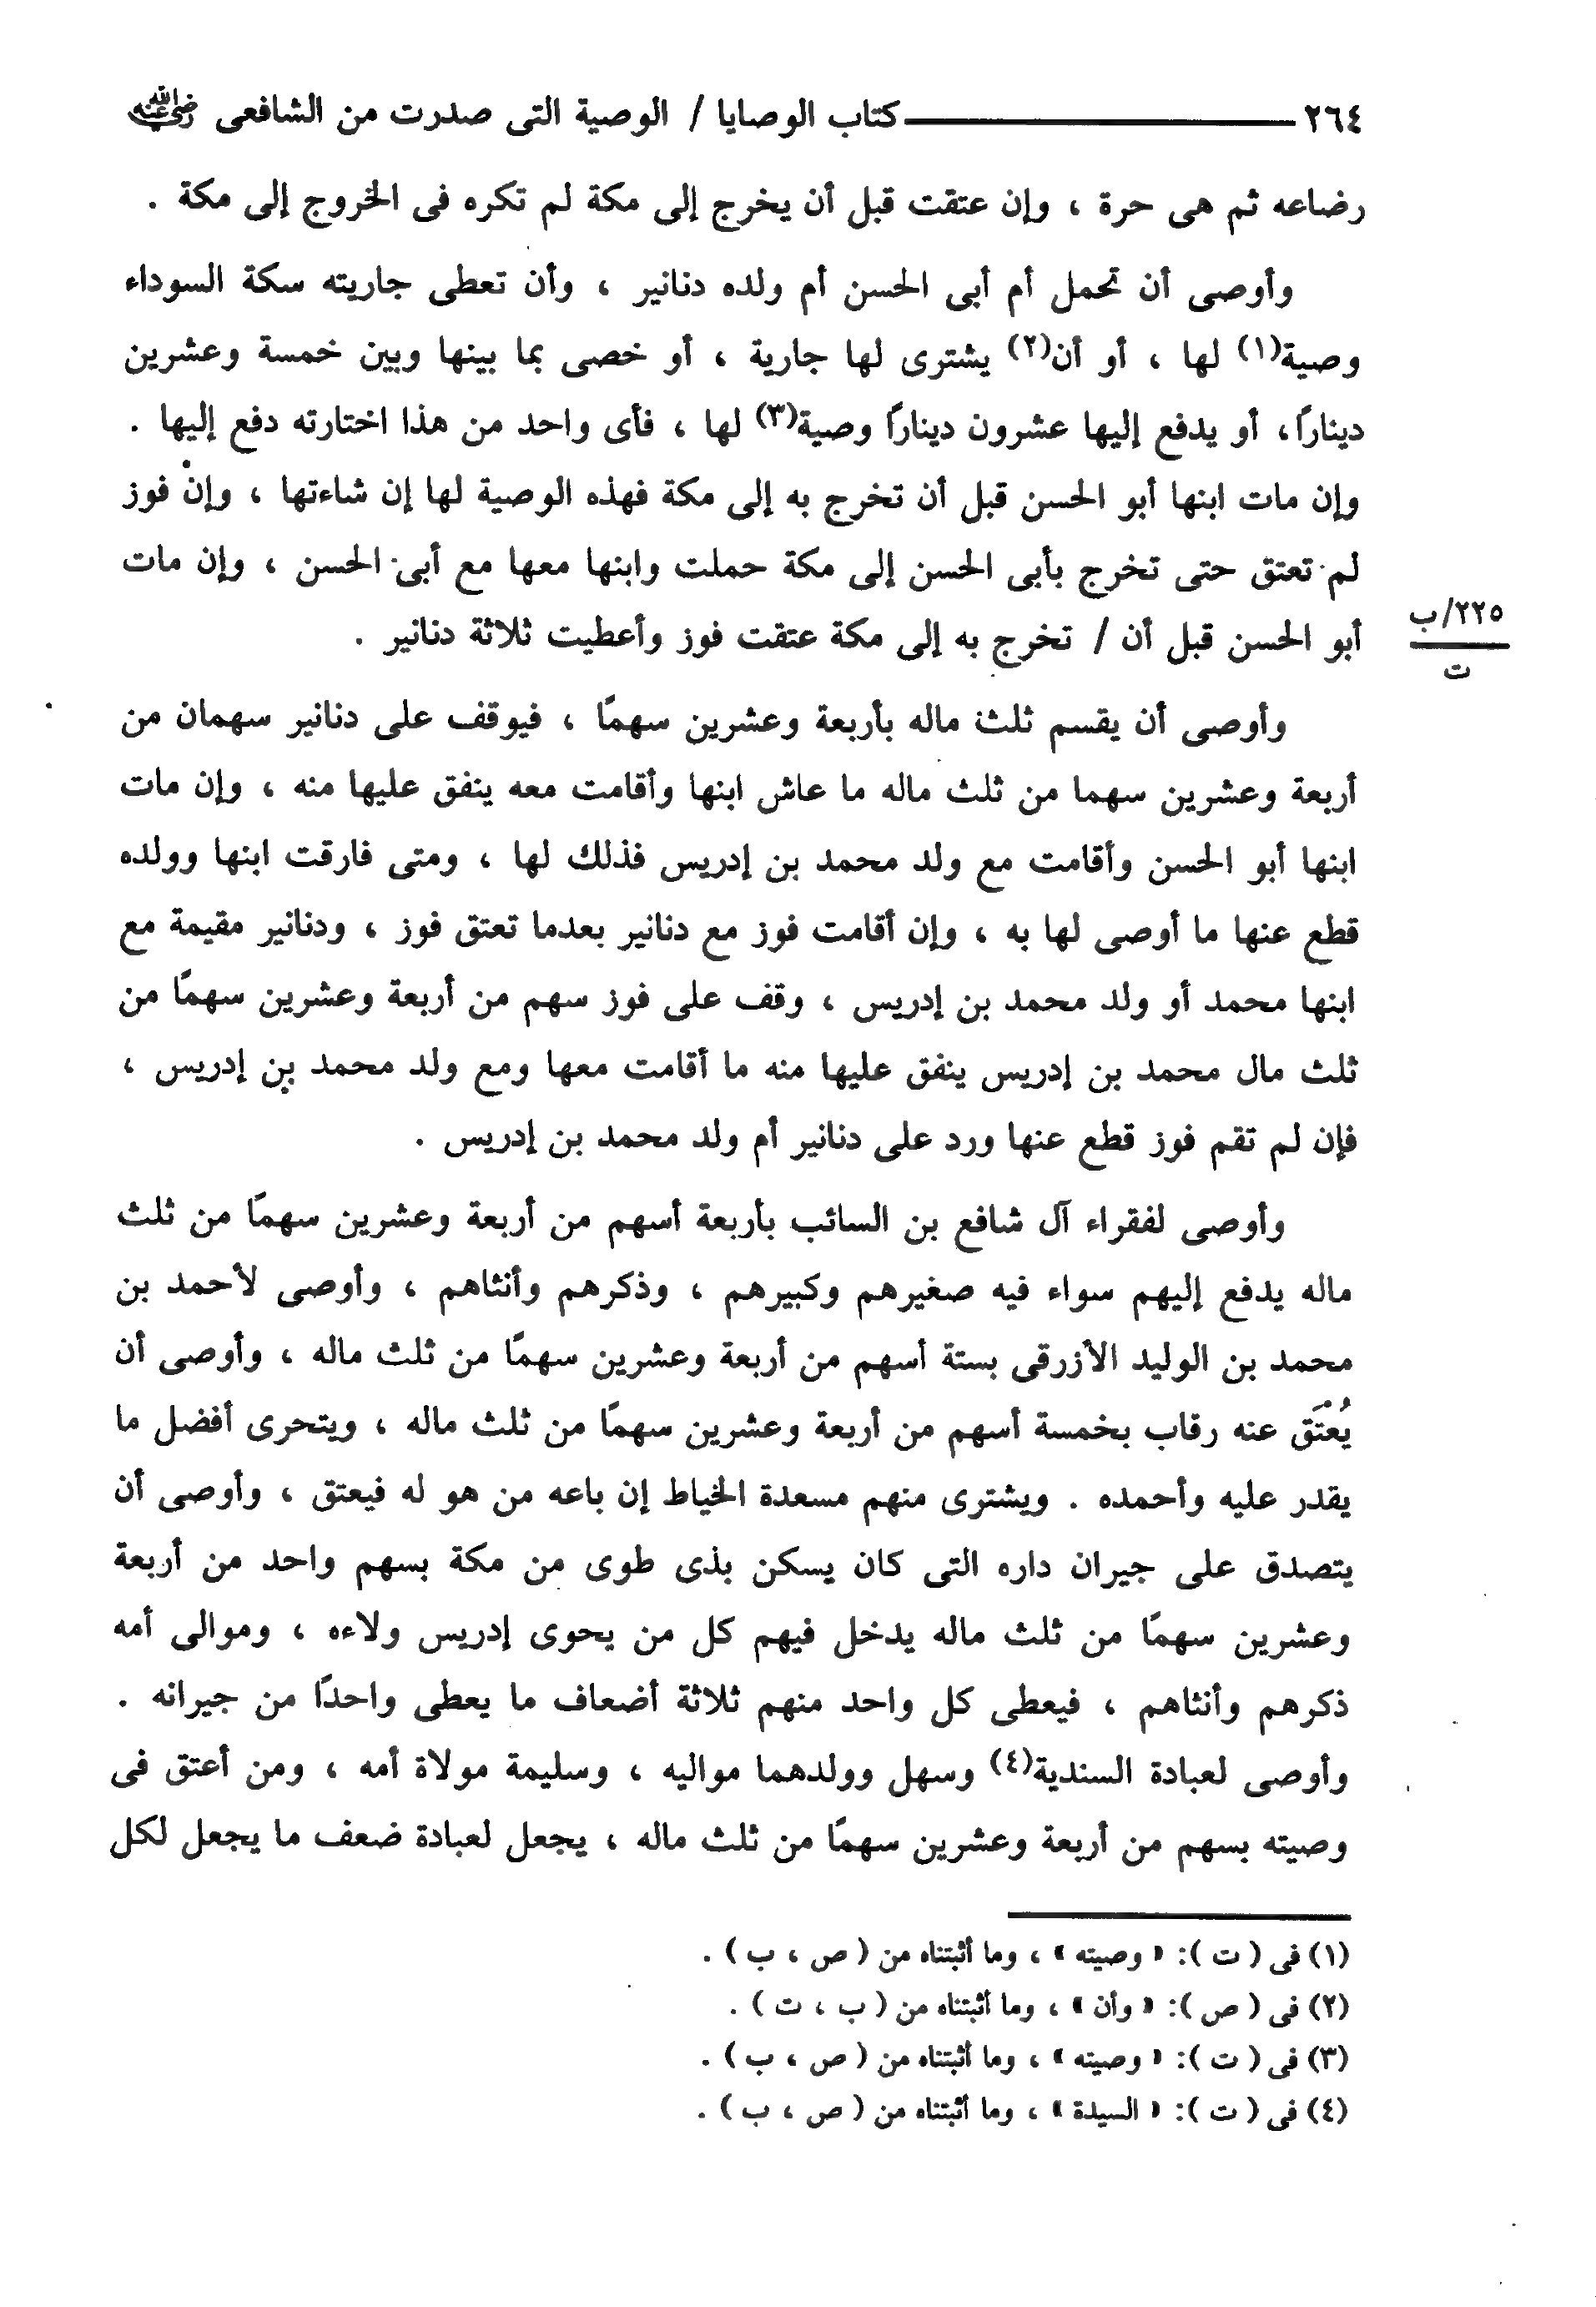 ٢٦٤ ــــــــــــــــــــ كتاب الوصايا / الوصية التى صدرت من الشافعى رضي الله عنه
رضاعه ثم هى حرة ، وإن عتقت قبل أن يخرج إلى مكة لم تكره فى الخروج إلى مكة .
وأوصى أن تحمل أم أبى الحسن أم ولده دنانير ، وأن تعطى جاريته سكة السوداء
وصية(١) لها ، أو أن(٢) يشترى لها جارية ، أو خصى بما بينها وبين خمسة وعشرين
دينارًا، أو يدفع إليها عشرون دينارًا وصية(٣) لها ، فأى واحد من هذا اختارته دفع إليها .
وإن مات ابنها أبو الحسن قبل أن تخرج به إلى مكة فهذه الوصية لها إن شاءتها ، وإن فوز
لم تعتق حتى تخرج بأبى الحسن إلى مكة حملت وابنها معها مع أبى الحسن ، وإن مات
أبو الحسن قبل أن / تخرج به إلى مكة عتقت فوز وأعطيت ثلاثة دنانير .
٢٢٥/ب
ت
وأوصى أن يقسم ثلث ماله بأربعة وعشرين سهمًا ، فيوقف على دنانير سهمان من
أربعة وعشرين سهما من ثلث ماله ما عاش ابنها وأقامت معه ينفق عليها منه ، وإن مات
ابنها أبو الحسن وأقامت مع ولد محمد بن إدريس فذلك لها ، ومتى فارقت ابنها وولده
قطع عنها ما أوصى لها به ، وإن أقامت فوز مع دنانير بعدما تعتق فوز ، ودنانير مقيمة مع
ابنها محمد أو ولد محمد بن إدريس ، وقف على فوز سهم من أربعة وعشرين سهمًا من
ثلث مال محمد بن إدريس ينفق عليها منه ما أقامت معها ومع ولد محمد بن إدريس ،
فإن لم تقم فوز قطع عنها ورد على دنانير أم ولد محمد بن إدريس .
وأوصى لفقراء آل شافع بن السائب بأربعة أسهم من أربعة وعشرين سهمًا من ثلث
ماله يدفع إليهم سواء فيه صغيرهم وكبيرهم ، وذكرهم وأنثاهم ، وأوصى لأحمد بن
محمد بن الوليد الأزرقى بستة أسهم من أربعة وعشرين سهمًا من ثلث ماله ، وأوصى أن
يُعْتَق عنه رقاب بخمسة أسهم من أربعة وعشرين سهمًا من ثلث ماله ، ويتحرى أفضل ما
يقدر عليه وأحمده . ويشترى منهم مسعدة الخياط إن باعه من هو له فيعتق ، وأوصى أن
يتصدق على جيران داره التى كان يسكن بذى طوى من مكة بسهم واحد من أربعة
وعشرين سهمًا من ثلث ماله يدخل فيهم كل من يحوى إدريس ولاءه ، وموالى أمه
ذكرهم وأنثاهم ، فيعطى كل واحد منهم ثلاثة أضعاف ما يعطى واحدًا من جيرانه .
وأوصى لعبادة السندية(٤) وسهل وولدهما مواليه ، وسليمة مولاة أمه ، ومن أعتق فى
وصيته بسهم من أربعة وعشرين سهمًا من ثلث ماله ، يجعل لعبادة ضعف ما يجعل لكل
(١) فى ( ت ): « وصيته » ، وما أثبتناه من ( ص ، ب ) .
(٢) فى ( ص ): « وأن » ، وما أثبتناه من ( ب ، ت ) .
(٣) فى ( ت ): « وصيته » ، وما أثبتناه من ( ص ، ب ) .
(٤) فى ( ت ): « السيدة » ، وما أثبتناه من ( ص ، ب ) .